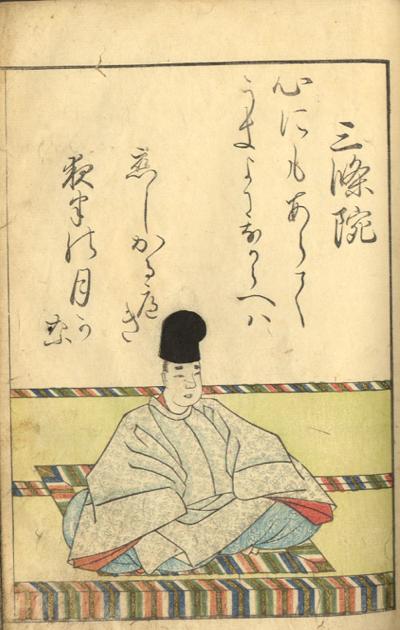 三條院
心にもあらて
うき よ にな可らへハ
恋しかるへき
夜半の月可
な